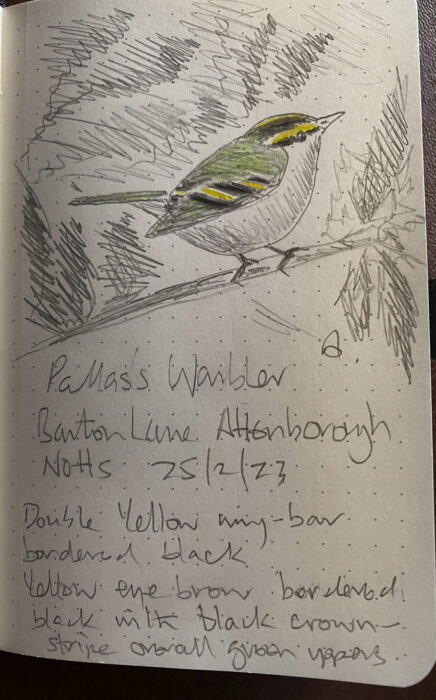 Pallas's Warbler
Barton Lane Attenborough
Notts 25/2/23
Double Yellow wing-bar
bordered black
Yellow eye brow bordered
black with black crown-
stripe overall green uppers.